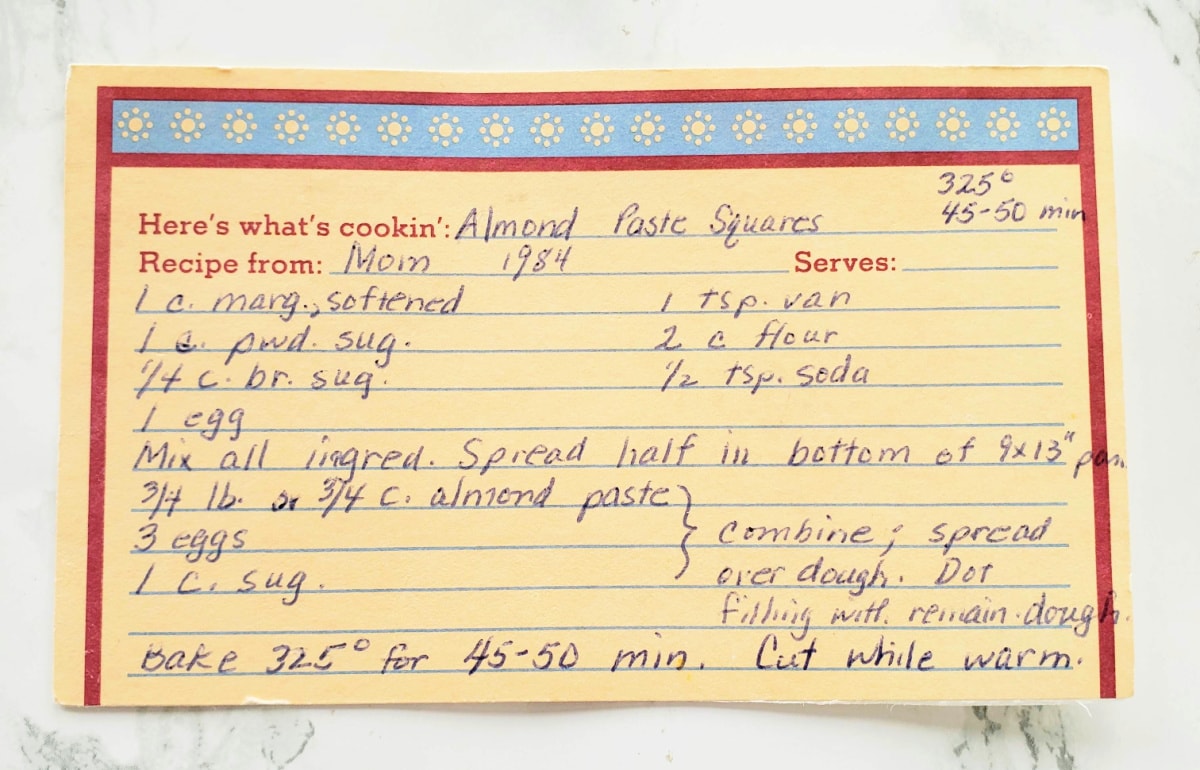 325°
45-50 min
Here's what's cookin': Almond Paste Squares
Recipe from: Mom 1984 Serves:
1 c. marg., softened 1 tsp. van
1 c. pwd. sug. 2 c flour
1/4 c. br. sug. 1/2 tsp. soda
1 egg
Mix all ingred. Spread half in bottom of 9x13" pan.
3/4 lb. or 3/4 c. almond paste
3 eggs } combine; spread
1 c. sug. over dough. Dot
filling with remain. dough.
Bake 325° for 45-50 min. Cut while warm.